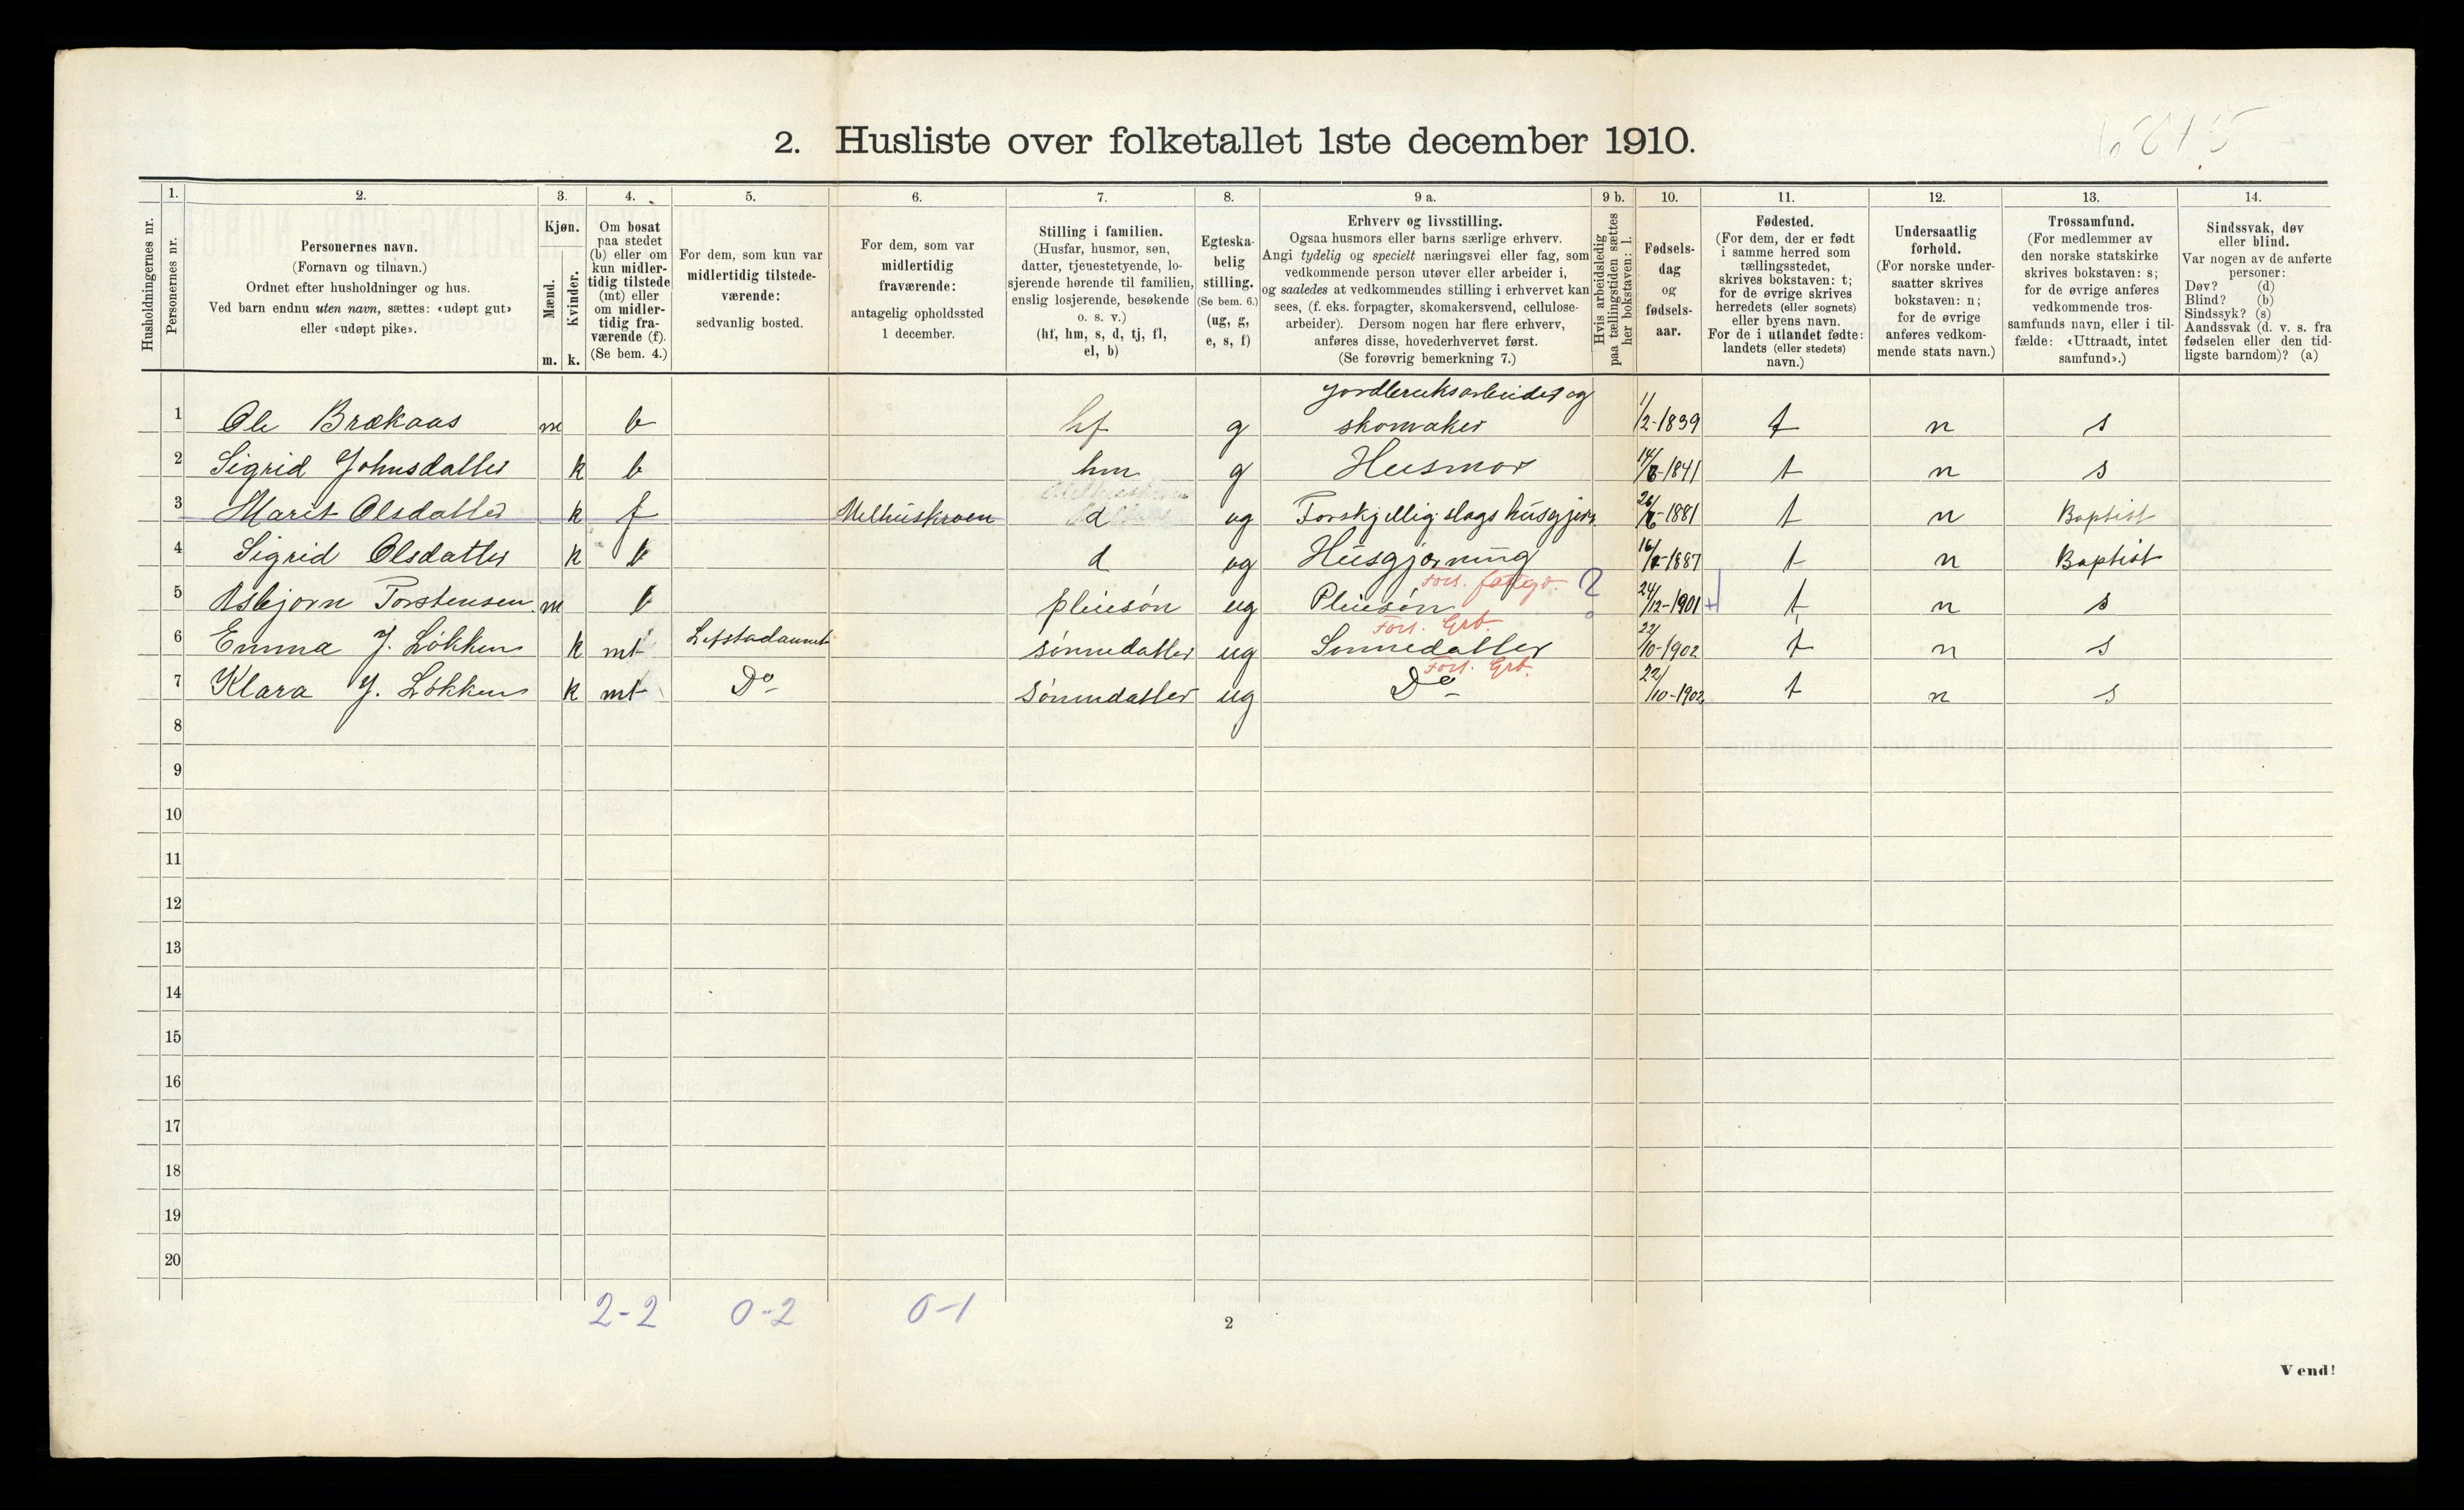 2. Husliste over folketallet 1ste december 1910.
Husholdningernes nr.
1. Personernes nr.
2. Personernes navn.
(Fornavn og tilnavn.)
Ordnet efter husholdninger og hus.
Ved barn endnu uten navn, sættes: «udøpt gut»
eller «udøpt pike».
3. Kjøn.
Mænd. m.
Kvinder. k.
4. Om bosat
paa stedet
(b) eller om
kun midler-
tidig tilstede
(mt) eller
om midler-
tidig fra-
værende (f).
(Se bem. 4.)
5. For dem, som kun var
midlertidig tilstede-
værende:
sedvanlig bosted.
6. For dem, som var
midlertidig
fraværende:
antagelig opholdssted
1 december.
7. Stilling i familien.
(Husfar, husmor, søn,
datter, tjenestetyende, lo-
sjerende hørende til familien,
enslig losjerende, besøkende
o. s. v.)
(hf, hm, s, d, tj, fl,
el, b)
8. Egteska-
belig
stilling.
(Se bem. 6.)
(ug, g,
e, s, f)
9 a. Erhverv og livsstilling.
Ogsaa husmors eller barns særlige erhverv.
Angi tydelig og specielt næringsvei eller fag, som
vedkommende person utøver eller arbeider i,
og saaledes at vedkommendes stilling i erhvervet kan
sees, (f. eks. forpagter, skomakersvend, cellulose-
arbeider). Dersom nogen har flere erhverv,
anføres disse, hovederhvervet først.
(Se forøvrig bemerkning 7.)
9 b. Hvis arbeidsledig
paa tællingstiden sættes
her bokstaven: l.
10. Fødsels-
dag
og
fødsels-
aar.
11. Fødested.
(For dem, der er født
i samme herred som
tællingsstedet,
skrives bokstaven: t;
for de øvrige skrives
herredets (eller sognets)
eller byens navn.
For de i utlandet fødte:
landets (eller stedets)
navn.)
12. Undersaatlig
forhold.
(For norske under-
saatter skrives
bokstaven: n;
for de øvrige
anføres vedkom-
mende stats navn.)
13. Trossamfund.
(For medlemmer av
den norske statskirke
skrives bokstaven: s;
for de øvrige anføres
vedkommende tros-
samfunds navn, eller i til-
fælde: «Uttraadt, intet
samfund».)
14. Sindssvak, døv
eller blind.
Var nogen av de anførte
personer:
Døv? (d)
Blind? (b)
Sindssyk? (s)
Aandssvak (d. v. s. fra
fødselen eller den tid-
ligste barndom)? (a)
jordbruksarbeider og
1 Ole Brækaas m b hf g skomaker 1/2-1839 t n s
2 Sigrid Johnsdatter k b hm g Husmor 14/6-1841 t n s
3 Marit Olsdatter k f Melhuskroen d ug Forskjellig slags husgjern. 26/6-1881 t n Baptist
4 Sigrid Olsdatter k b d ug Husgjerning 16/-1887 t n Baptist
Fors. fattigv. ?
5 Asbjørn Torstensen m b pleiesøn ug Pleiesøn 24/12-1901 + t n s
Fors. Grb.
6 Emma J. Løkken k mt sønnedatter ug Sønnedatter 22/10-1902 t n s
Fors. Grb.
7 Klara J. Løkken k mt Do sønnedatter ug Do 22/10-1902 t n s
8
9
10
11
12
13
14
15
16
17
18
19
20
2-2 0-2 0-1
2
Vend!